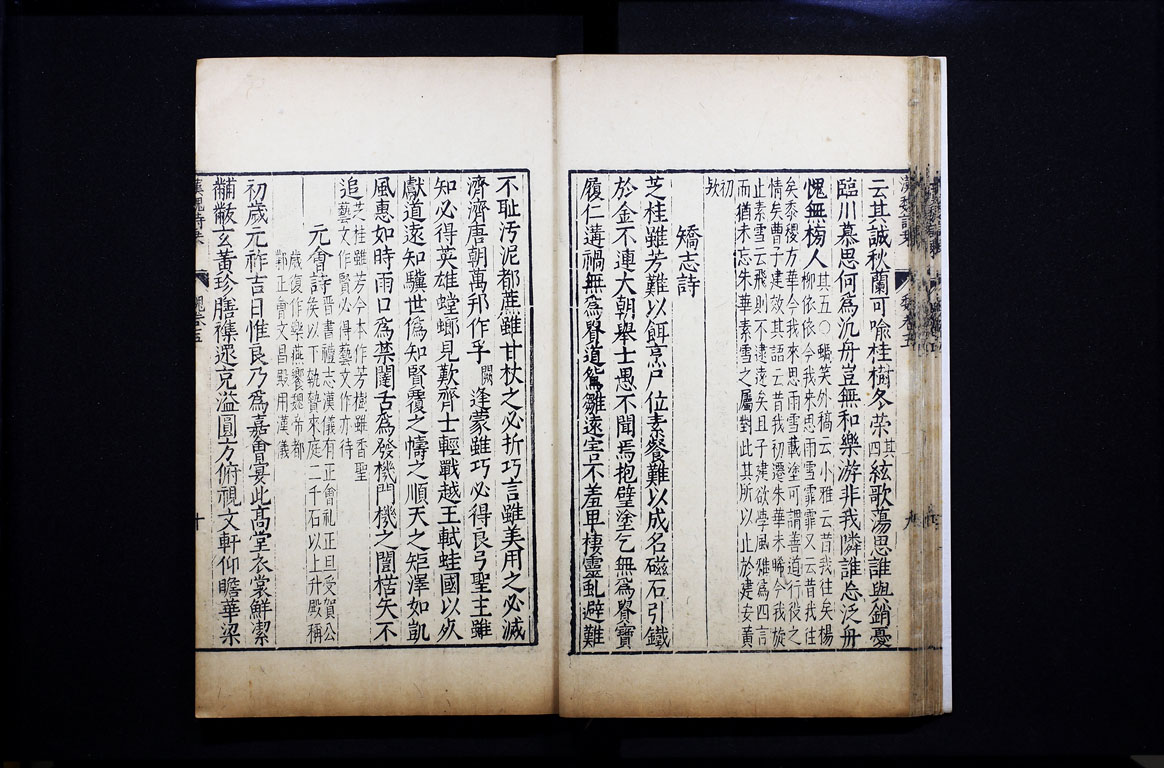 云其誠秋蘭可喻桂樹冬荣其四絃歌蕩思誰與銷憂
臨川慕思何爲汎舟豈無和樂游非我隣誰忘泛舟
愧無榜人其五〇蟾笑外稿云小雅云昔我往矣楊
柳依依今我来思雨雪霏霏又云昔我往
矣黍稷方華今我來思雨雪載塗可謂善道行役之
情矣曹子建效其語云昔我初遷朱華未晞今我旋
止素雪云飛則不逮遠矣且子建欲學風雅爲四言
而猶未忘朱華素雪之屬對此其所以止於建安黄
初
欤
矯志詩
芝桂雖芳難以餌烹尸位素餐難以成名磁石引鐵
於金不連大朝舉士愚不聞焉抱璧塗乞無爲貴寳
履仁遘禍無爲貴道鴛雛遠害不羞卑棲靈虬避難
不耻汚泥都蔗雖甘杖之必折巧言雖美用之必滅
濟濟唐朝萬邦作孚闕逄蒙雖巧必得良弓聖主雖
知必得英雄螳螂見歎齊士輕戰越王軾蛙國以死
獻道遠知驥世僞知賢覆之幬之順天之矩澤如凱
風惠如時雨口爲禁闥舌爲發機門機之闓楛矢不
追芝桂雖芳今本作芳樹雖香聖
藝文作賢必得藝文作亦待
元會詩晋書禮志漢儀有正會礼正旦受賀公
侯以下執贄來庭二千石以上升殿稱
歳復作樂燕饗魏帝都
鄴正會文昌殿用漢儀
初歲元祚吉日惟良乃爲嘉會宴此髙堂衣裳鮮潔
黼黻玄黄珍膳襍遝充溢圓方俯視文軒仰瞻華梁
十